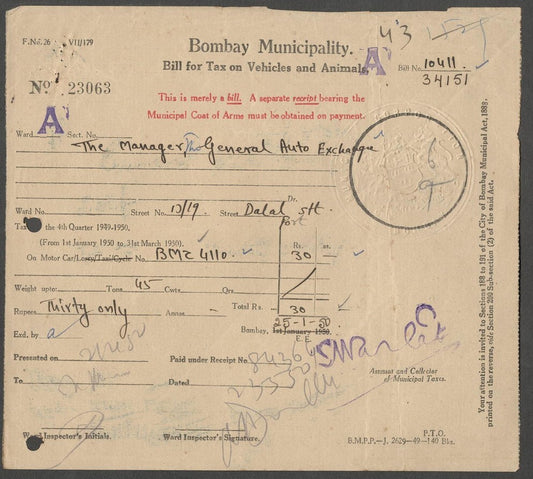 4'3
F.No.26 VII/179
Bombay Municipality.
Bill for Tax on Vehicles and Animals,
A
Bill No. 10411
34151
No 23063
This is merely a bill. A separate receipt bearing the
Municipal Coat of Arms must be obtained on payment.
A
Ward Sect. No.
The Manager, The General Auto Exchange
6
9
Ward No. Street No. 10/19 Street Dalal St
Dr.
Fort
Tax for the 4th Quarter 1949-1950.
(From 1st January 1950 to 31st March 1950) Rs. as.
On Motor Car/Lorry/Taxi/Cycle No. BMZ 4110 30 —
Weight upto: Tons 45 Cwts. Qrs.
Rupees Thirty only Annas — Total Rs. 30 —
25-1-50
Bombay, 1st January 1950.
Exd. by a
E.E.
Presented on
Paid under Receipt No. 8436
Assessor and Collector
of Municipal Taxes.
To
Dated
Ward Inspector's Initials.
Ward Inspector's Signature.
P.T.O.
B.M.P.P.—J. 2629—49—140 Bks.
Your attention is invited to Sections 188 to 191 of the City of Bombay Municipal Act, 1888,
printed on the reverse, and Section 209 Sub-section (2) of the said Act.